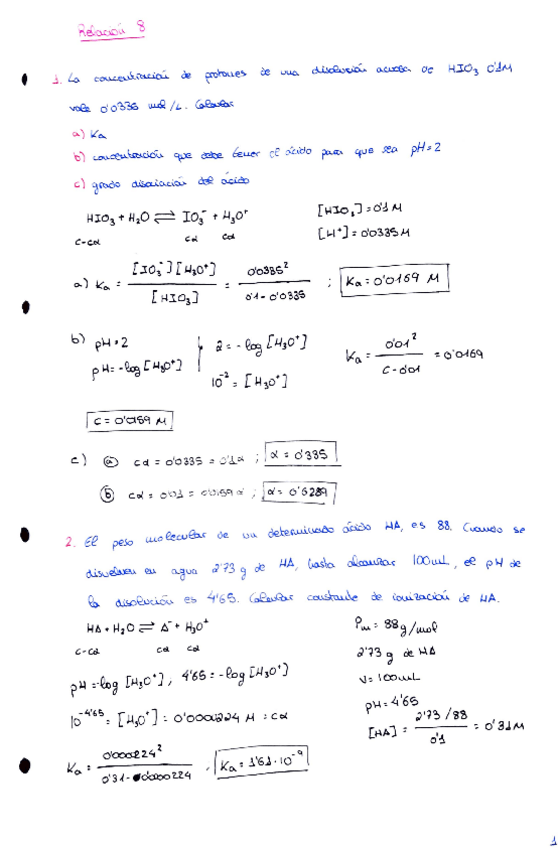 Relación 8
1. La concentración de protones de una disolución acuosa de HIO₃ 0'1M
vale 0'0335 mol/L. Calcular
a) Ka
b) concentración que debe tener el ácido para que sea pH=2
c) grado disociación del ácido
HIO₃ + H₂O ⇌ IO₃⁻ + H₃O⁺ [HIO₃] = 0'1 M
c-cα cα cα [H⁺] = 0'0335 M
a) Ka = [IO₃⁻][H₃O⁺] / [HIO₃] = 0'0335² / 0'1 - 0'0335 ; Ka = 0'0169 M
b) pH = 2 2 = -log [H₃O⁺] Ka = 0'01² / c - 0'01 = 0'0169
pH = -log [H₃O⁺] 10⁻² = [H₃O⁺]
c = 0'0159 M
c) ⓐ cα = 0'0335 = 0'1α ; α = 0'335
ⓑ cα = 0'01 = 0'0159 α ; α = 0'6289
2. El peso molecular de un determinado ácido HA, es 88. Cuando se
disuelven en agua 2'73 g de HA, hasta alcanzar 100 mL, el pH de
la disolución es 4'65. Calcular constante de ionización de HA.
HA + H₂O ⇌ A⁻ + H₃O⁺ Pm = 88 g/mol
c-cα cα cα 2'73 g de HA
pH = -log [H₃O⁺] , 4'65 = -log [H₃O⁺] V = 100 mL
pH = 4'65
10⁻⁴'⁶⁵ = [H₃O⁺] = 0'0000224 M = cα [HA] = 2'73 / 88 / 0'1 = 0'31 M
Ka = 0'0000224² / 0'31 - 0'0000224 , Ka = 1'61·10⁻⁹
1